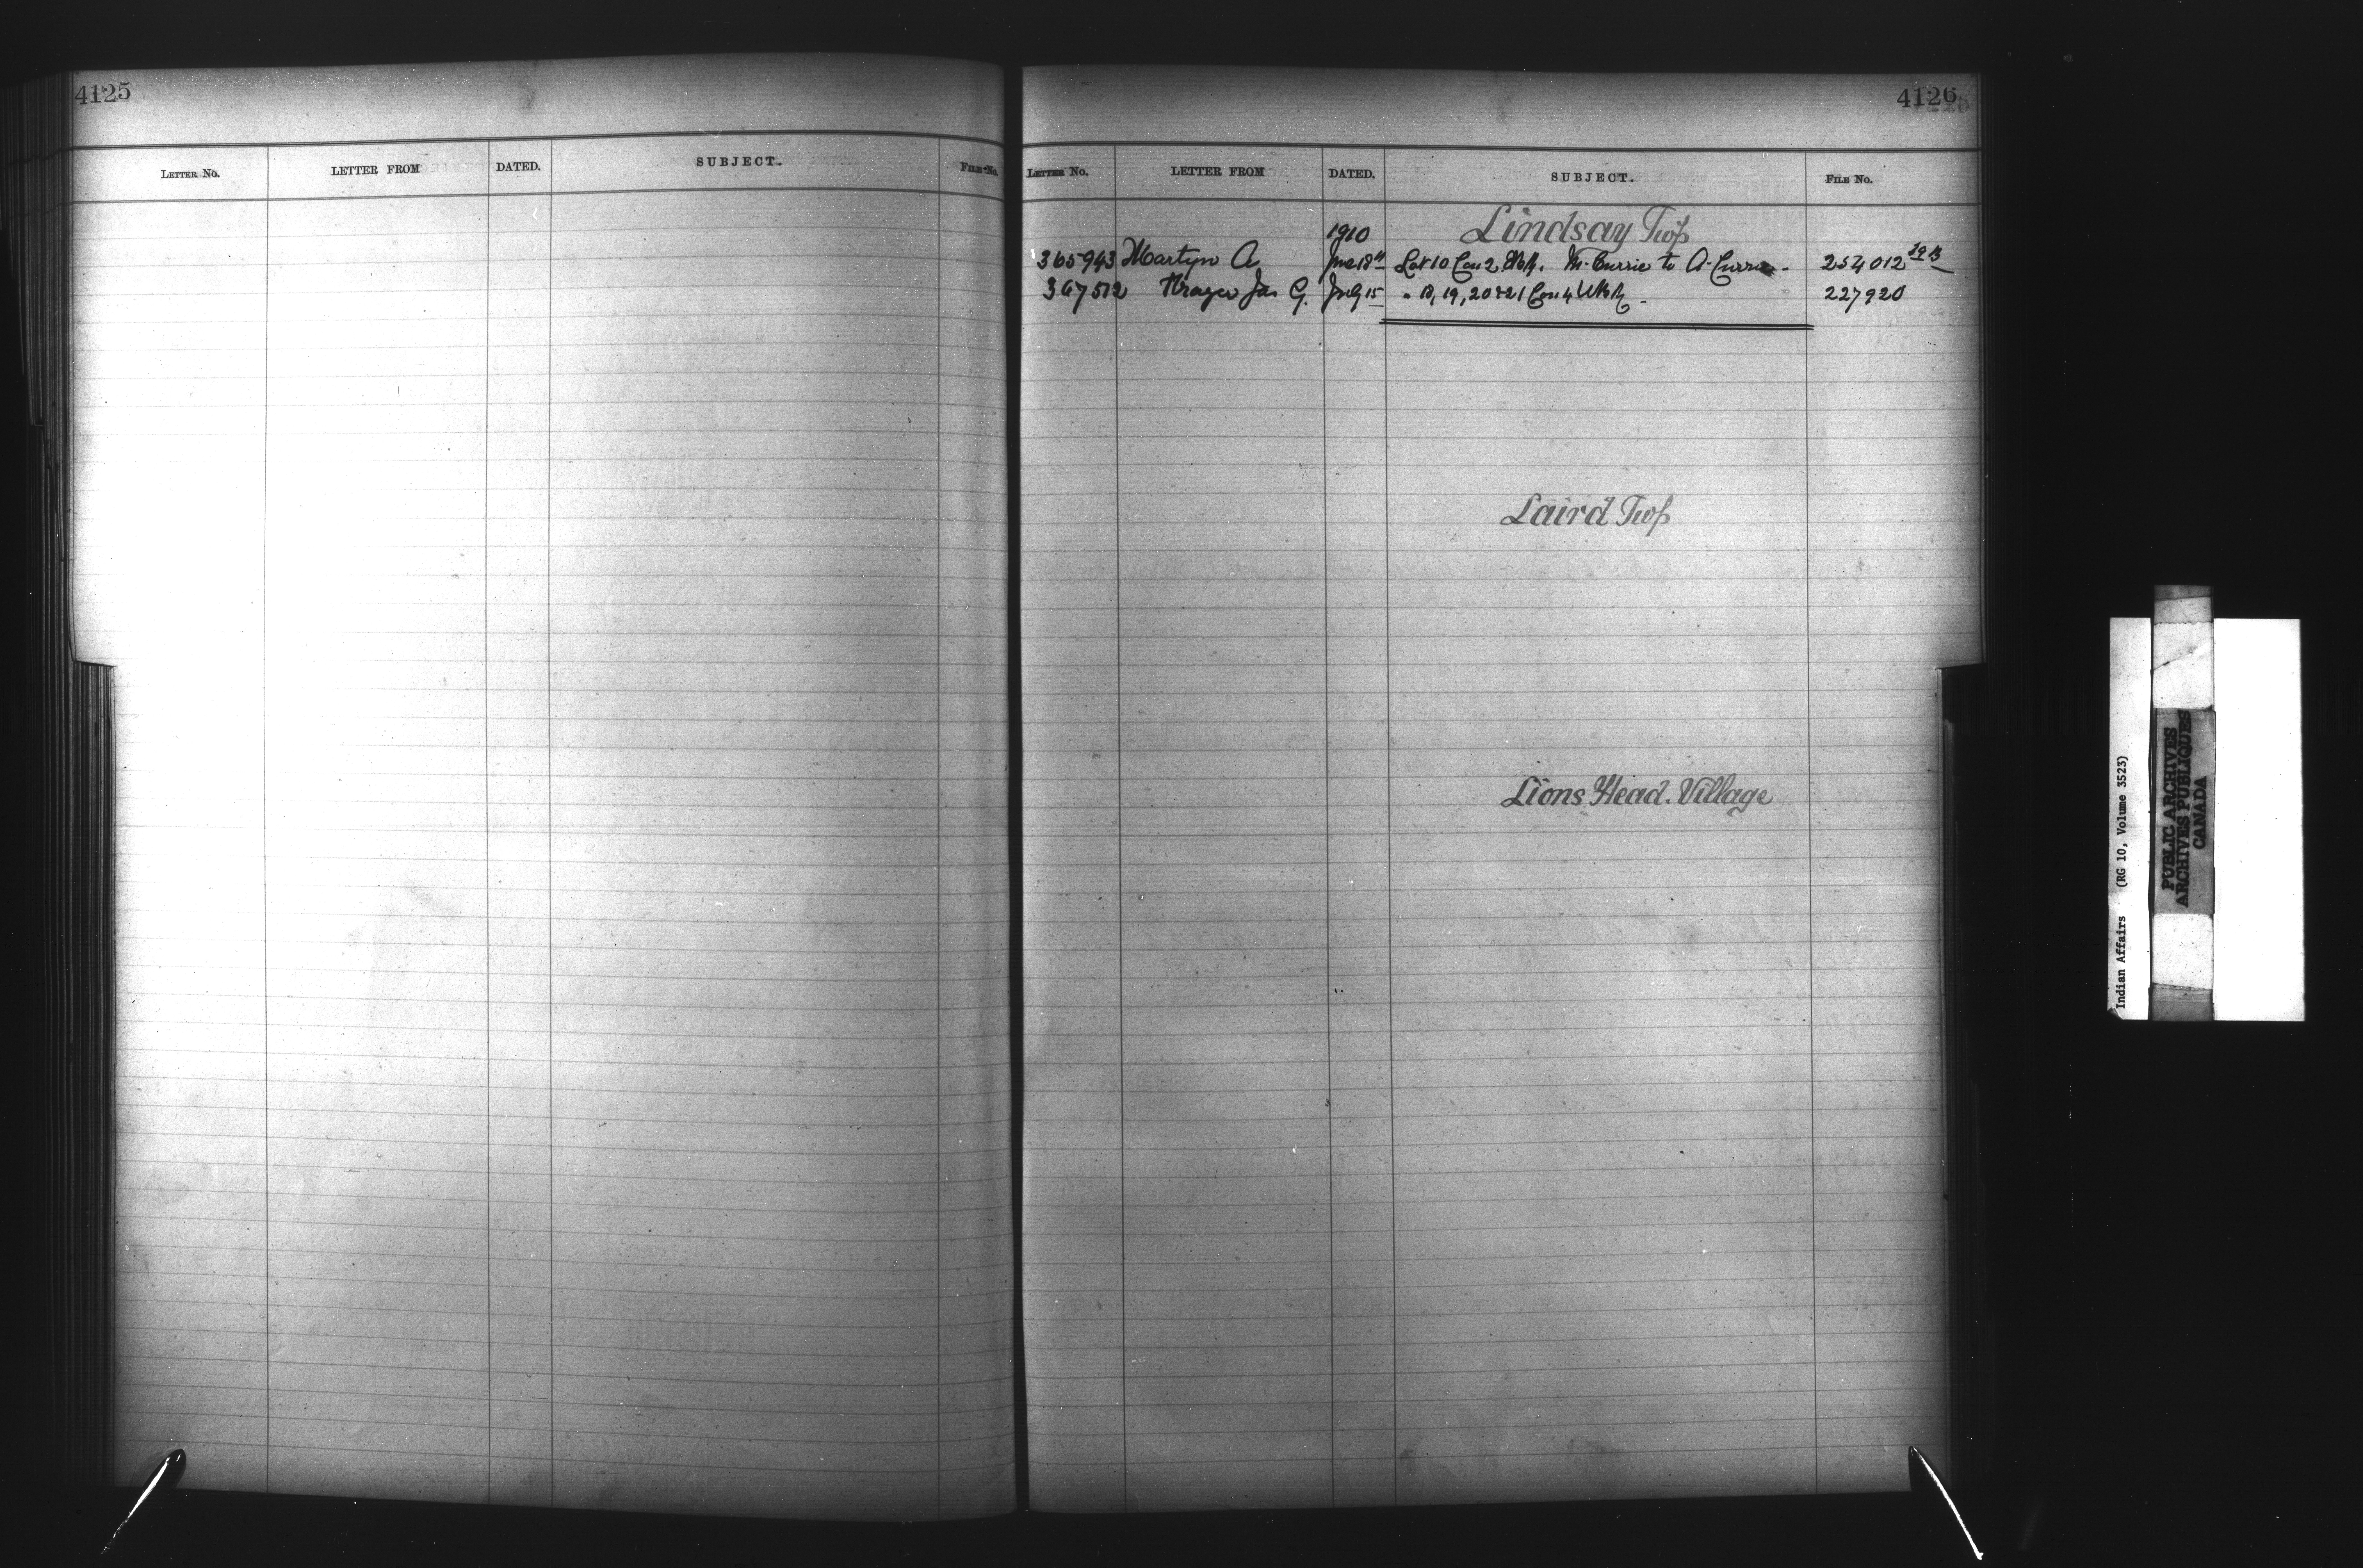 4125
LETTER NO. LETTER FROM DATED. SUBJECT. FILE No.
4126
LETTER NO. LETTER FROM DATED. SUBJECT. FILE No.
Lindsay Twp
1910
365943 Martyn A June 18th Lot 10 Con 2 M. Currie to A. Currie - 254012
367512 Jas G. July 15 " 18, 19, 20 & 21 Con 4 227920
Laird Twp
Lions Head. Village
Indian Affairs (RG 10, Volume 3523)
PUBLIC ARCHIVES
ARCHIVES PUBLIQUES
CANADA